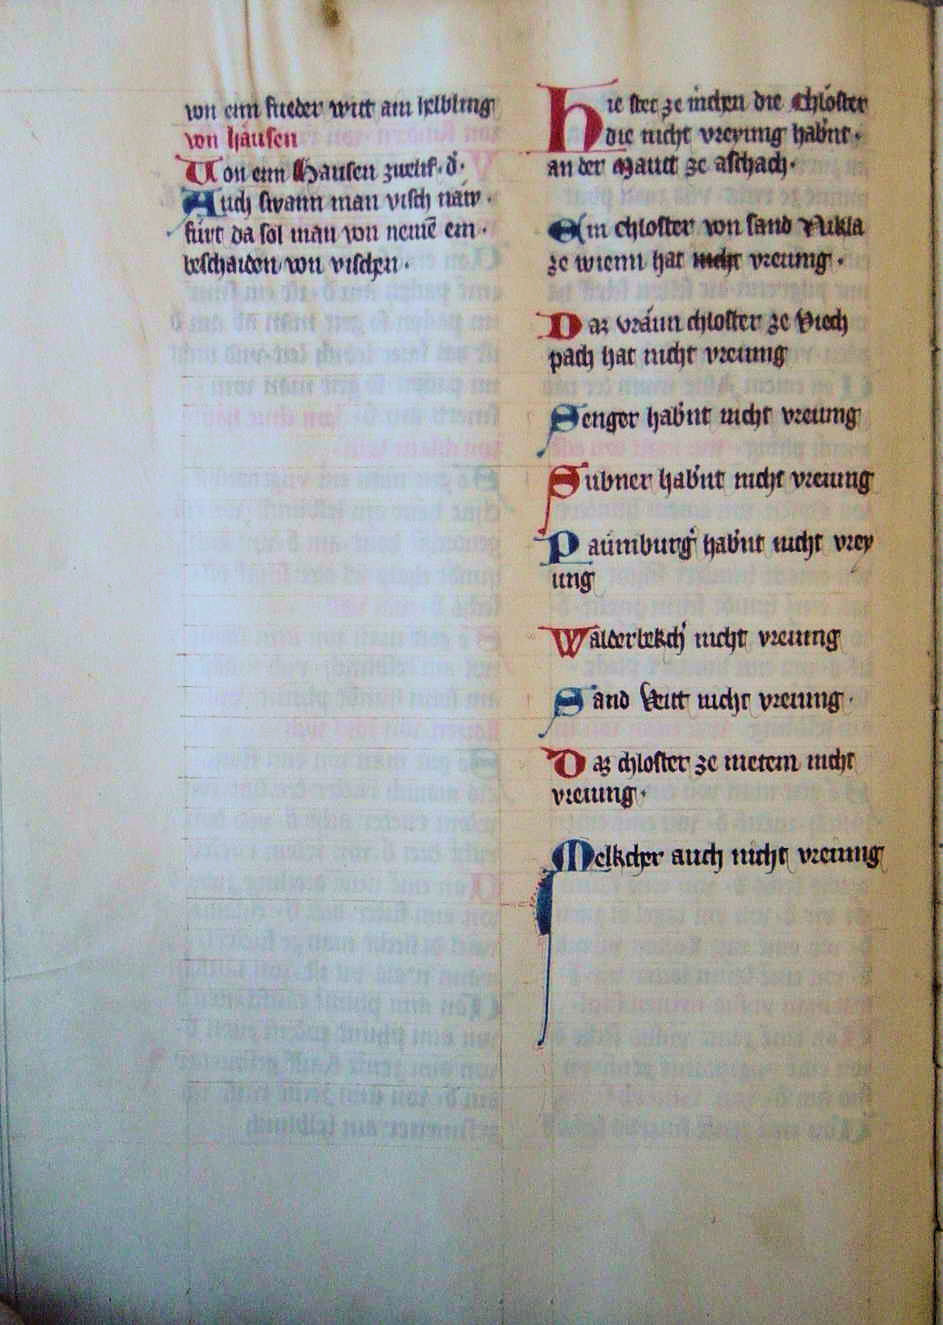 von eim fueder witt ain helbling
von hausen
Von eim Hausen zwelif · d ·
Auch swann man visch naw ·
fürt da sol man von nemē ein ·
beschaiden von vischen ·
Hie stet ze mchen die chloster
die nicht vreyung habnt ·
an der Mautt ze aschach ·
Ein chloster von sand Nikla
ze wienn hat nicht vreiung ·
Daz vraun chloster ze Niech
pach hat nicht vreiung
Senger habnt nicht vreiung
Subner habnt nicht vreiung
Paumburg habnt nicht vrey
ung
Walderbekch nicht vreiung
Sand Veitt nicht vreiung ·
Daz chloster ze metem nicht
vreiung ·
Melkcher auch nicht vreiung